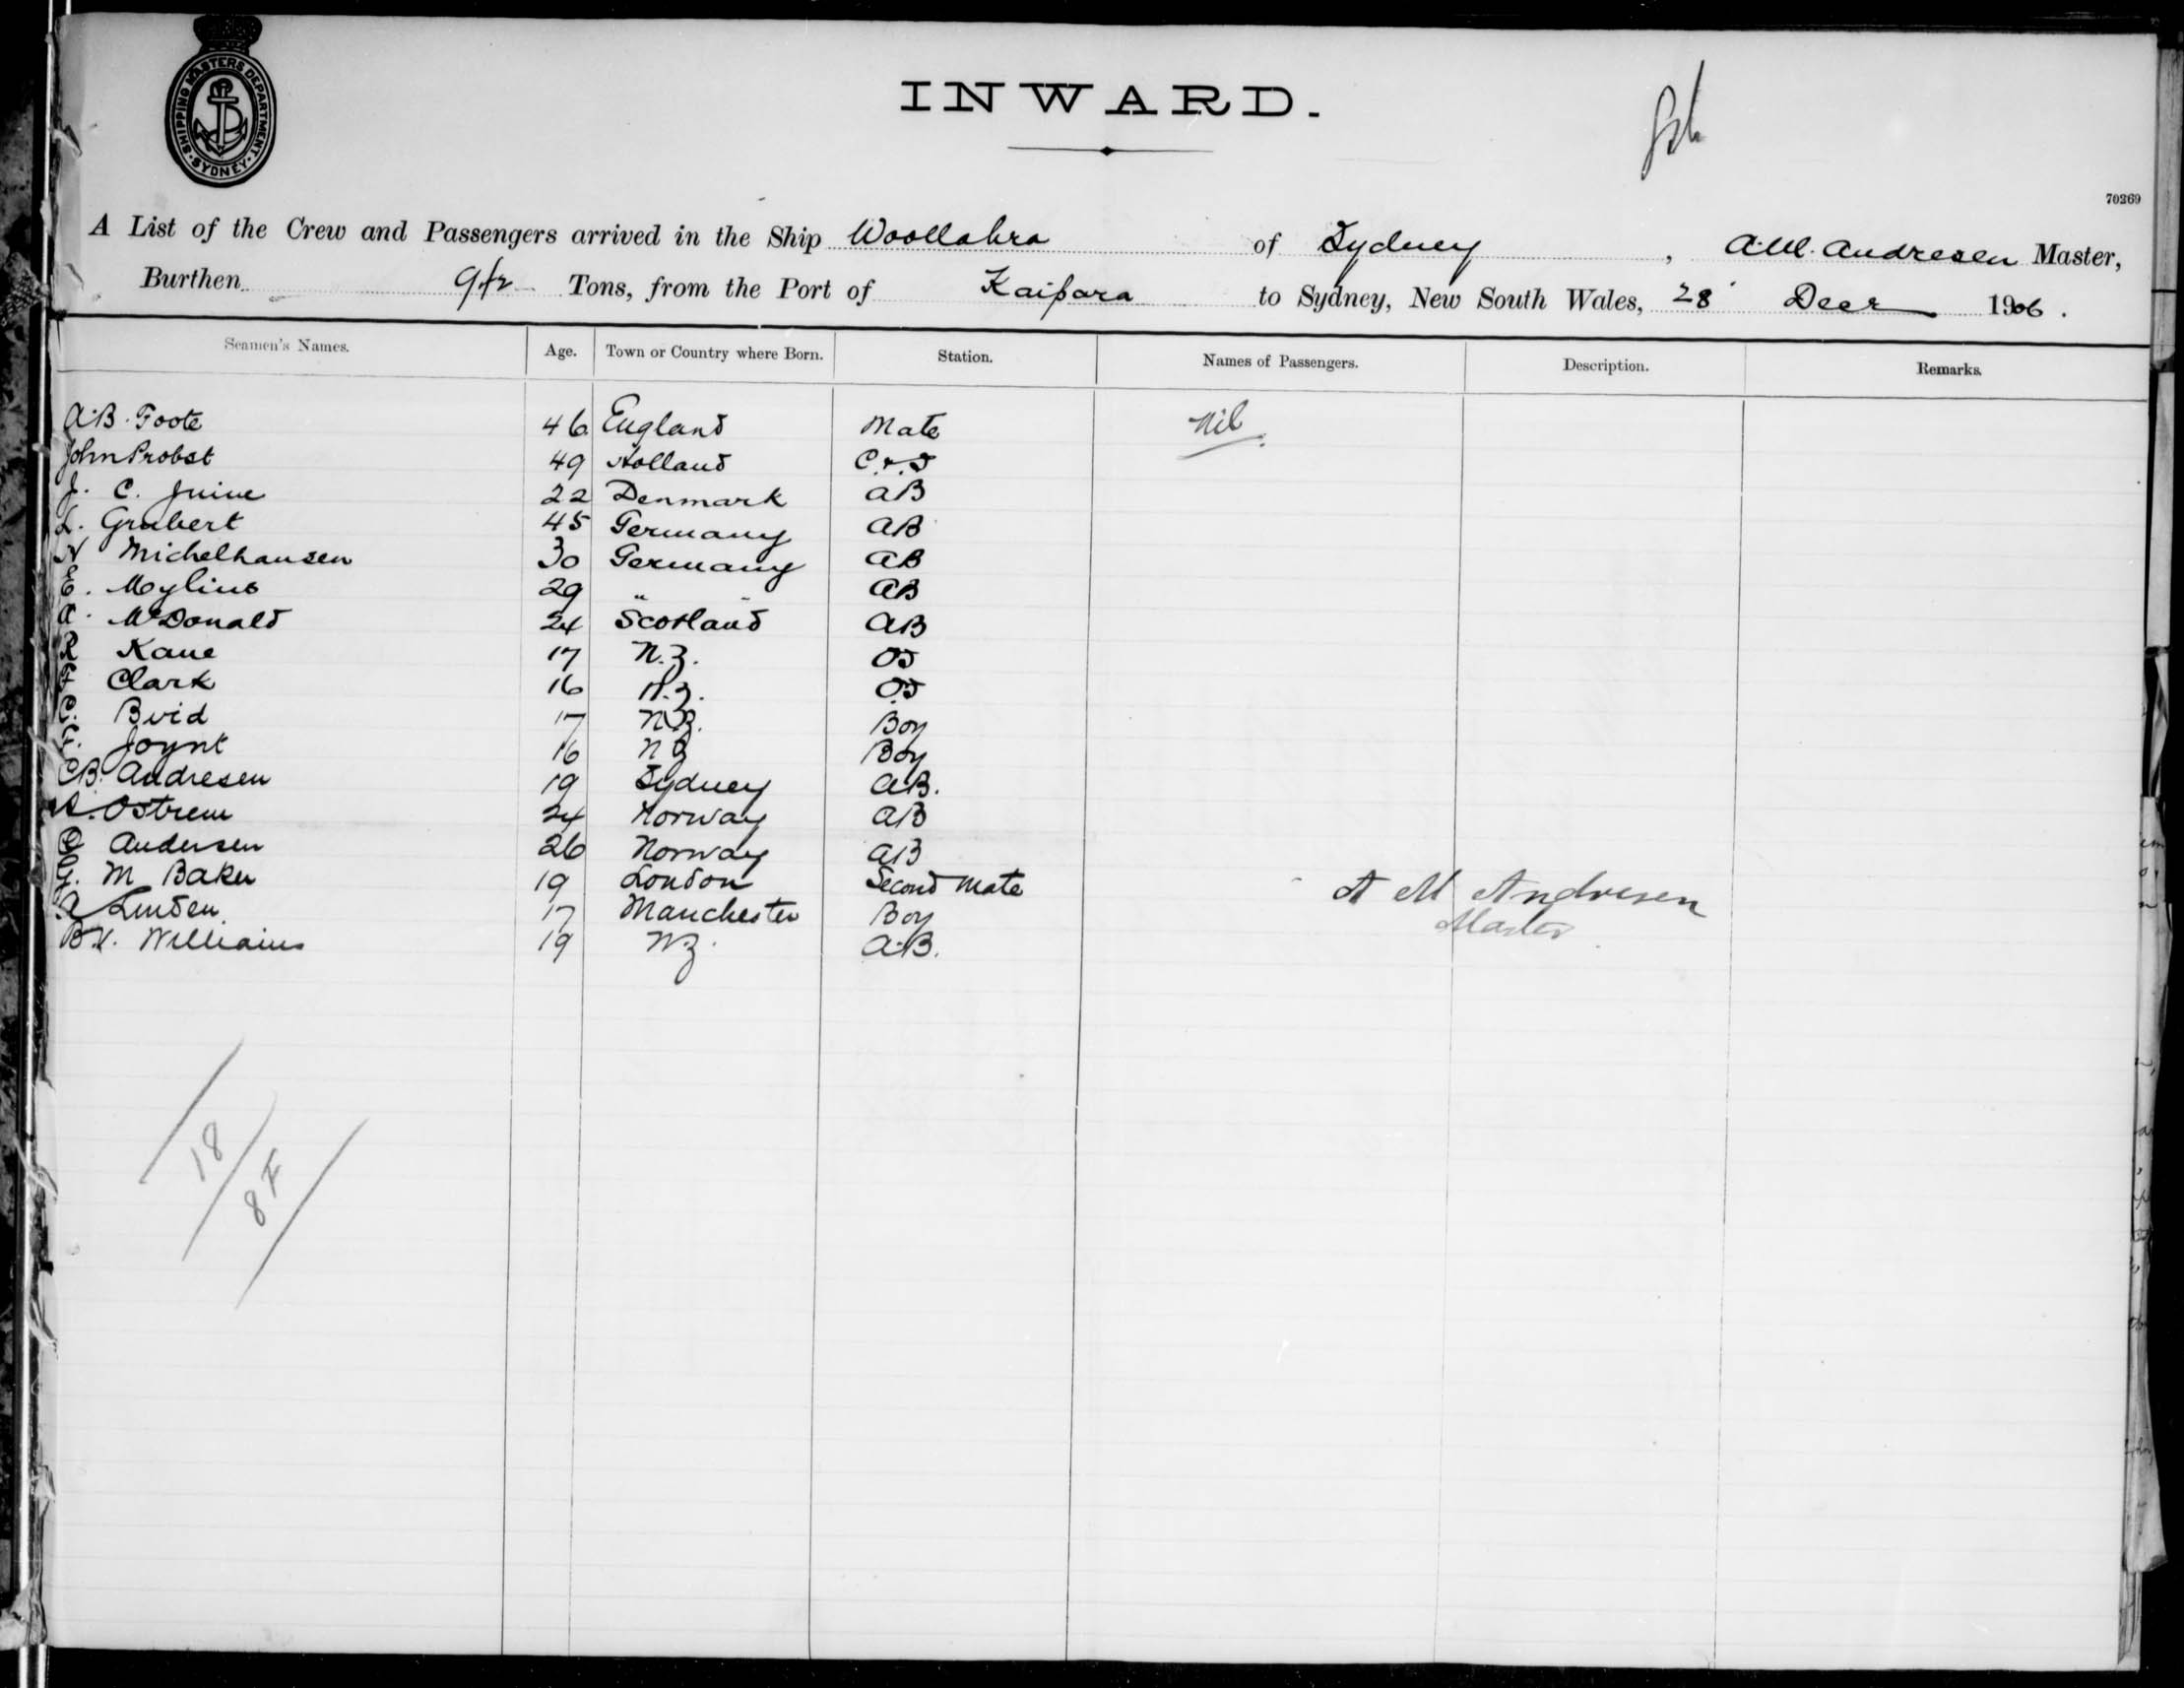 SHIPPING MASTERS DEPARTMENT. SYDNEY.
INWARD.
70269
A List of the Crew and Passengers arrived in the Ship Woollahra of Sydney, A.M. Andresen Master,
Burthen Tons, from the Port of Kaipara to Sydney, New South Wales, 28 Decr 1906.
Seamen's Names. Age. Town or Country where Born. Station. Names of Passengers. Description. Remarks.
A.B. Foote 46 England Mate Nil
John Probst 49 Holland C.&.S
J. C. 22 Denmark AB
L. Grubert 45 Germany AB
N Michelhausen 30 Germany AB
E. Mylius 29 " " AB
A. McDonald 24 Scotland AB
R Kane 17 N.Z. OS
F Clark 16 N.Z. OS
C. 17 N.Z. Boy
F. Joynt 16 NZ Boy
C.B. Andresen 19 Sydney A.B.
Ostrem 24 Norway AB
Andersen 26 Norway AB
G. M Baker 19 London Second Mate
A Linden 17 Manchester Boy
B.V. Williams 19 NZ. A.B.
A M Andresen
Master
18
8 F